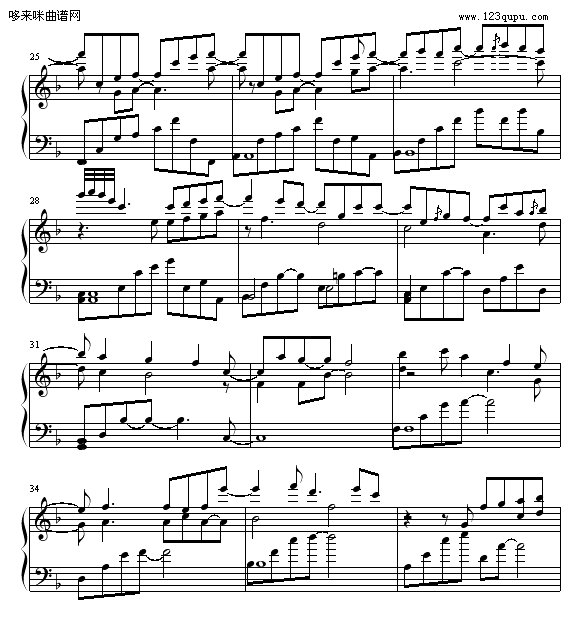 哆来咪曲谱网
www.123qupu.com
25
28
31
34